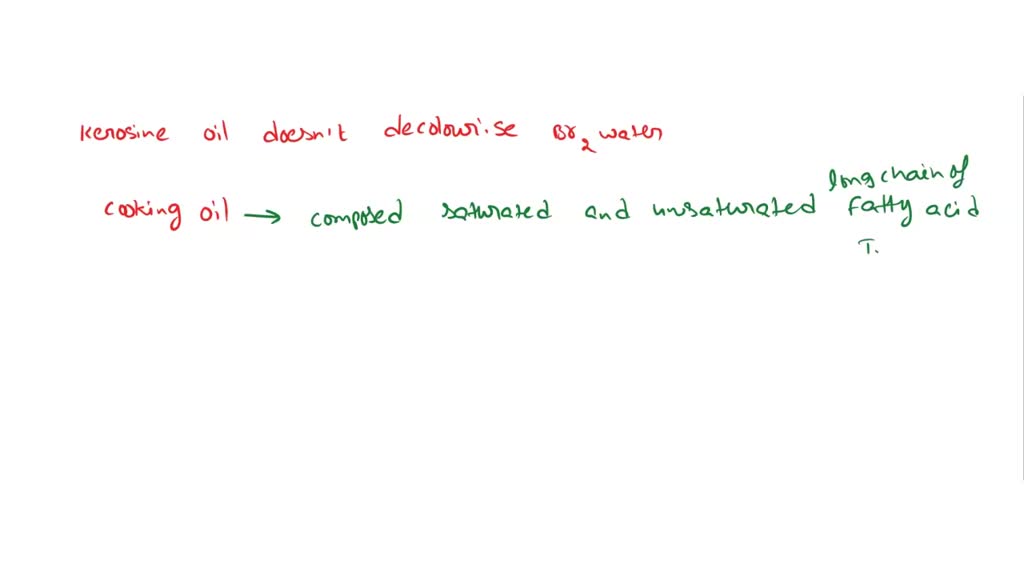 Kerosine oil doesn't decolourise Br2 water
cooking oil → composed saturated and unusaturated long chain of fatty acid
T.